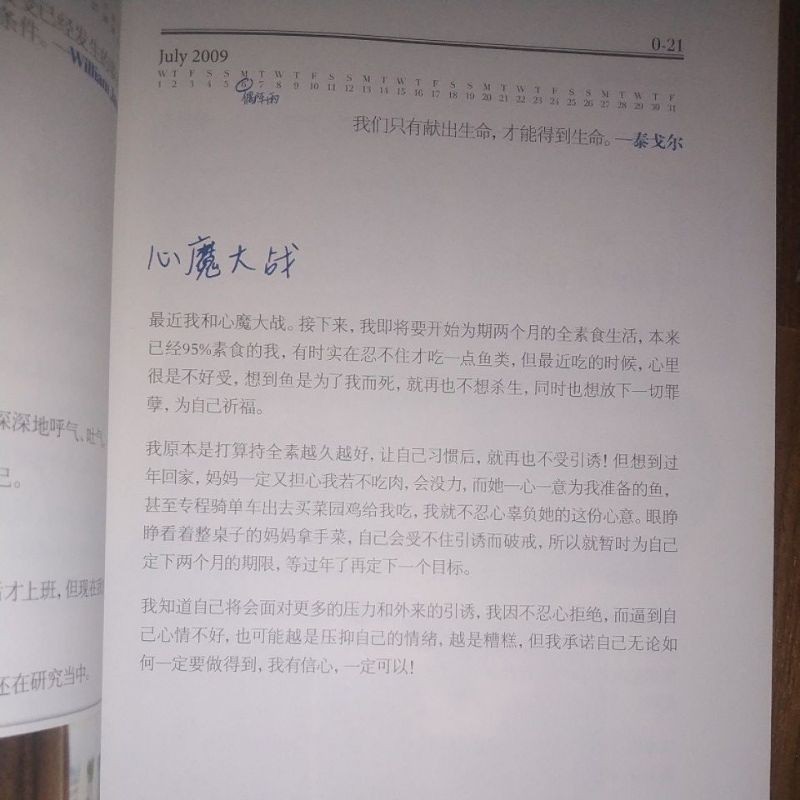 条件。—William
深深地呼气、吐气。
己。
后才上班，但现在我
还在研究当中。
0-21
July 2009
W T F S S M T W T F S S M T W T F S S M T W T F S S M T W T F
1 2 3 4 5 6 7 8 9 10 11 12 13 14 15 16 17 18 19 20 21 22 23 24 25 26 27 28 29 30 31
偶阵雨
我们只有献出生命，才能得到生命。—泰戈尔
心魔大战
最近我和心魔大战。接下来，我即将要开始为期两个月的全素食生活，本来
已经95%素食的我，有时实在忍不住才吃一点鱼类，但最近吃的时候，心里
很是不好受，想到鱼是为了我而死，就再也不想杀生，同时也想放下一切罪
孽，为自己祈福。
我原本是打算持全素越久越好，让自己习惯后，就再也不受引诱！但想到过
年回家，妈妈一定又担心我若不吃肉，会没力，而她一心一意为我准备的鱼，
甚至专程骑单车出去买菜园鸡给我吃，我就不忍心辜负她的这份心意。眼睁
睁看着整桌子的妈妈拿手菜，自己会受不住引诱而破戒，所以就暂时为自己
定下两个月的期限，等过年了再定下一个目标。
我知道自己将会面对更多的压力和外来的引诱，我因不忍心拒绝，而逼到自
己心情不好，也可能越是压抑自己的情绪，越是糟糕，但我承诺自己无论如
何一定要做得到，我有信心，一定可以！